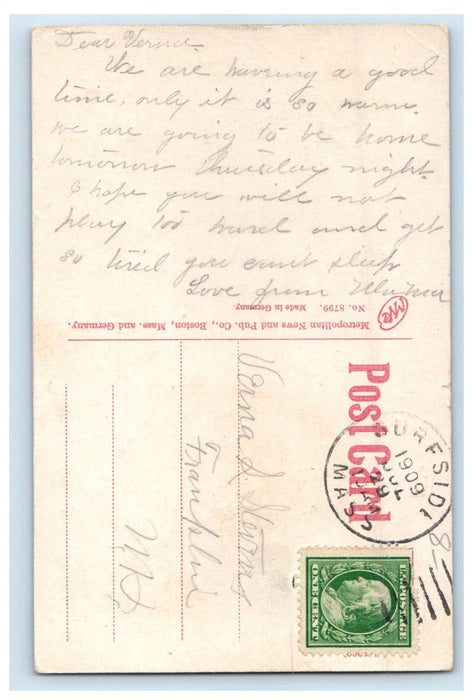 Dear Verna.
We are having a good
time, only it is so warm.
we are going to be home
tomorrow Thursday night.
I hope you will not
play too hard and get
so tired you cant sleep
Love from Mama
No. 8799. Made in Germany.
Metropolitan News and Pub. Co., Boston, Mass. and Germany,
Post Card
Verna S. Stevens
Franklin
NH
SURFSIDE
1909
JUL
MASS.
U.S. POSTAGE
ONE CENT